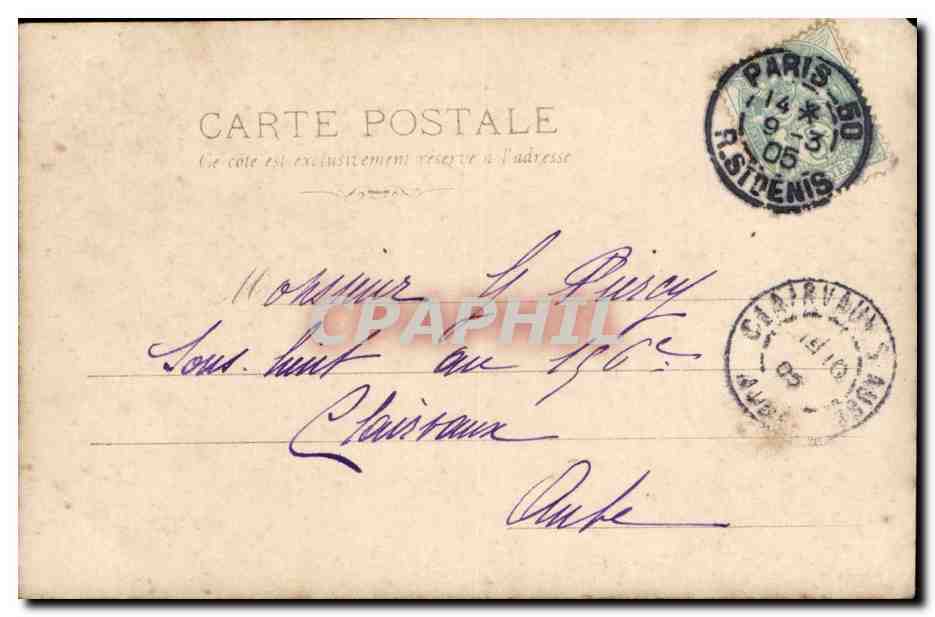 CARTE POSTALE
Ce côté est exclusivement réservé à l'adresse
PARIS 50
14 *
9 -3
05
R. ST DENIS
Monsieur
Sous-Lieut au
Clairvaux
Aube
CLAIRVAUX S. AUBE
05
CPAPHIL